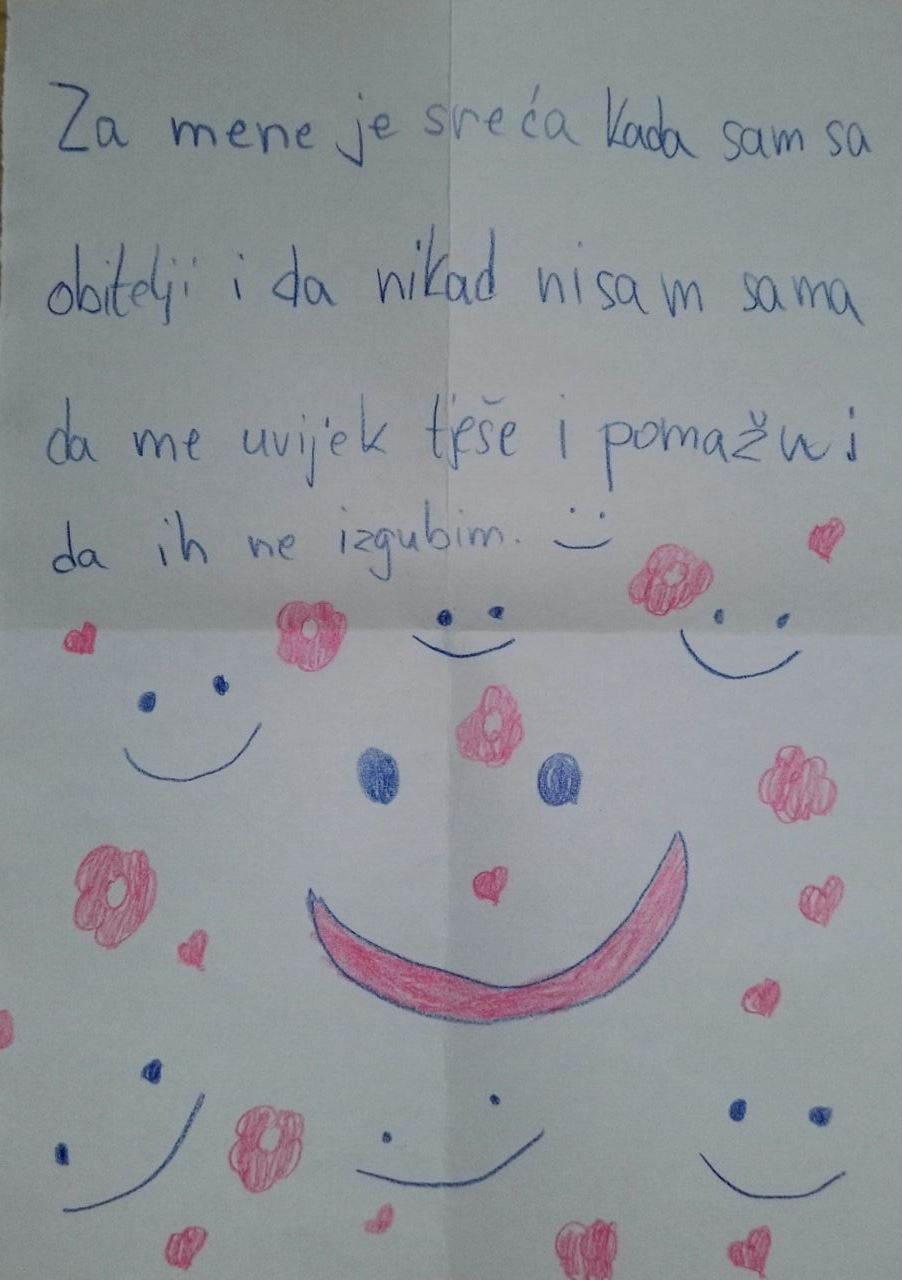 Za mene je sreća kada sam sa
obitelji i da nikad nisam sama
da me uvijek tješe i pomažu i
da ih ne izgubim.